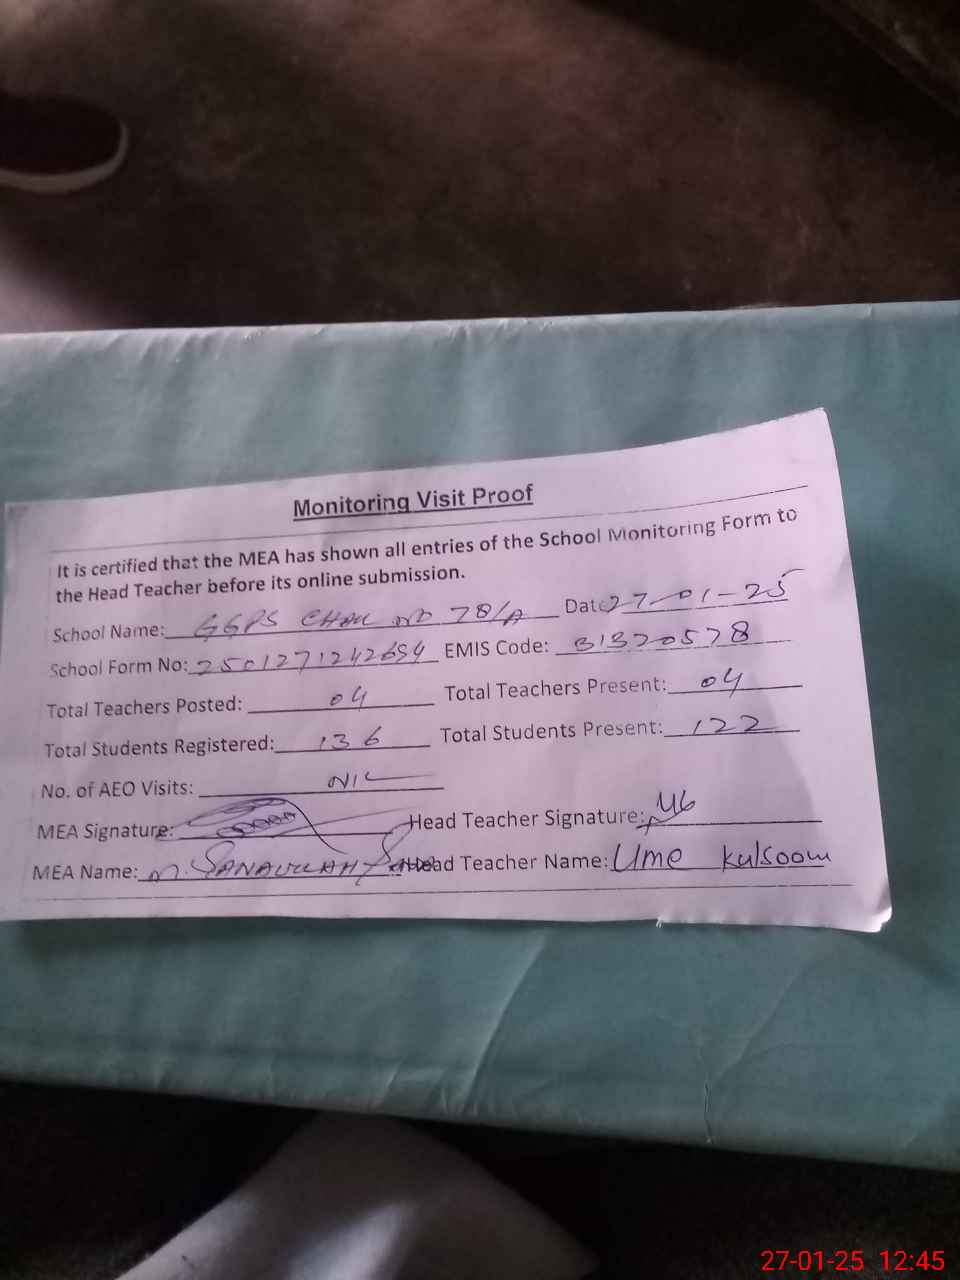 Monitoring Visit Proof
It is certified that the MEA has shown all entries of the School Monitoring Form to
the Head Teacher before its online submission.
School Name: GGPS CHAK NO 78/A Date 27-01-25
School Form No: 2501271242694 EMIS Code: 31320578
Total Teachers Posted: 04 Total Teachers Present: 04
Total Students Registered: 136 Total Students Present: 122
No. of AEO Visits: NIL
MEA Signature: Head Teacher Signature:
MEA Name: M. SANAULLAH Head Teacher Name: Ume Kulsoom
27-01-25 12:45